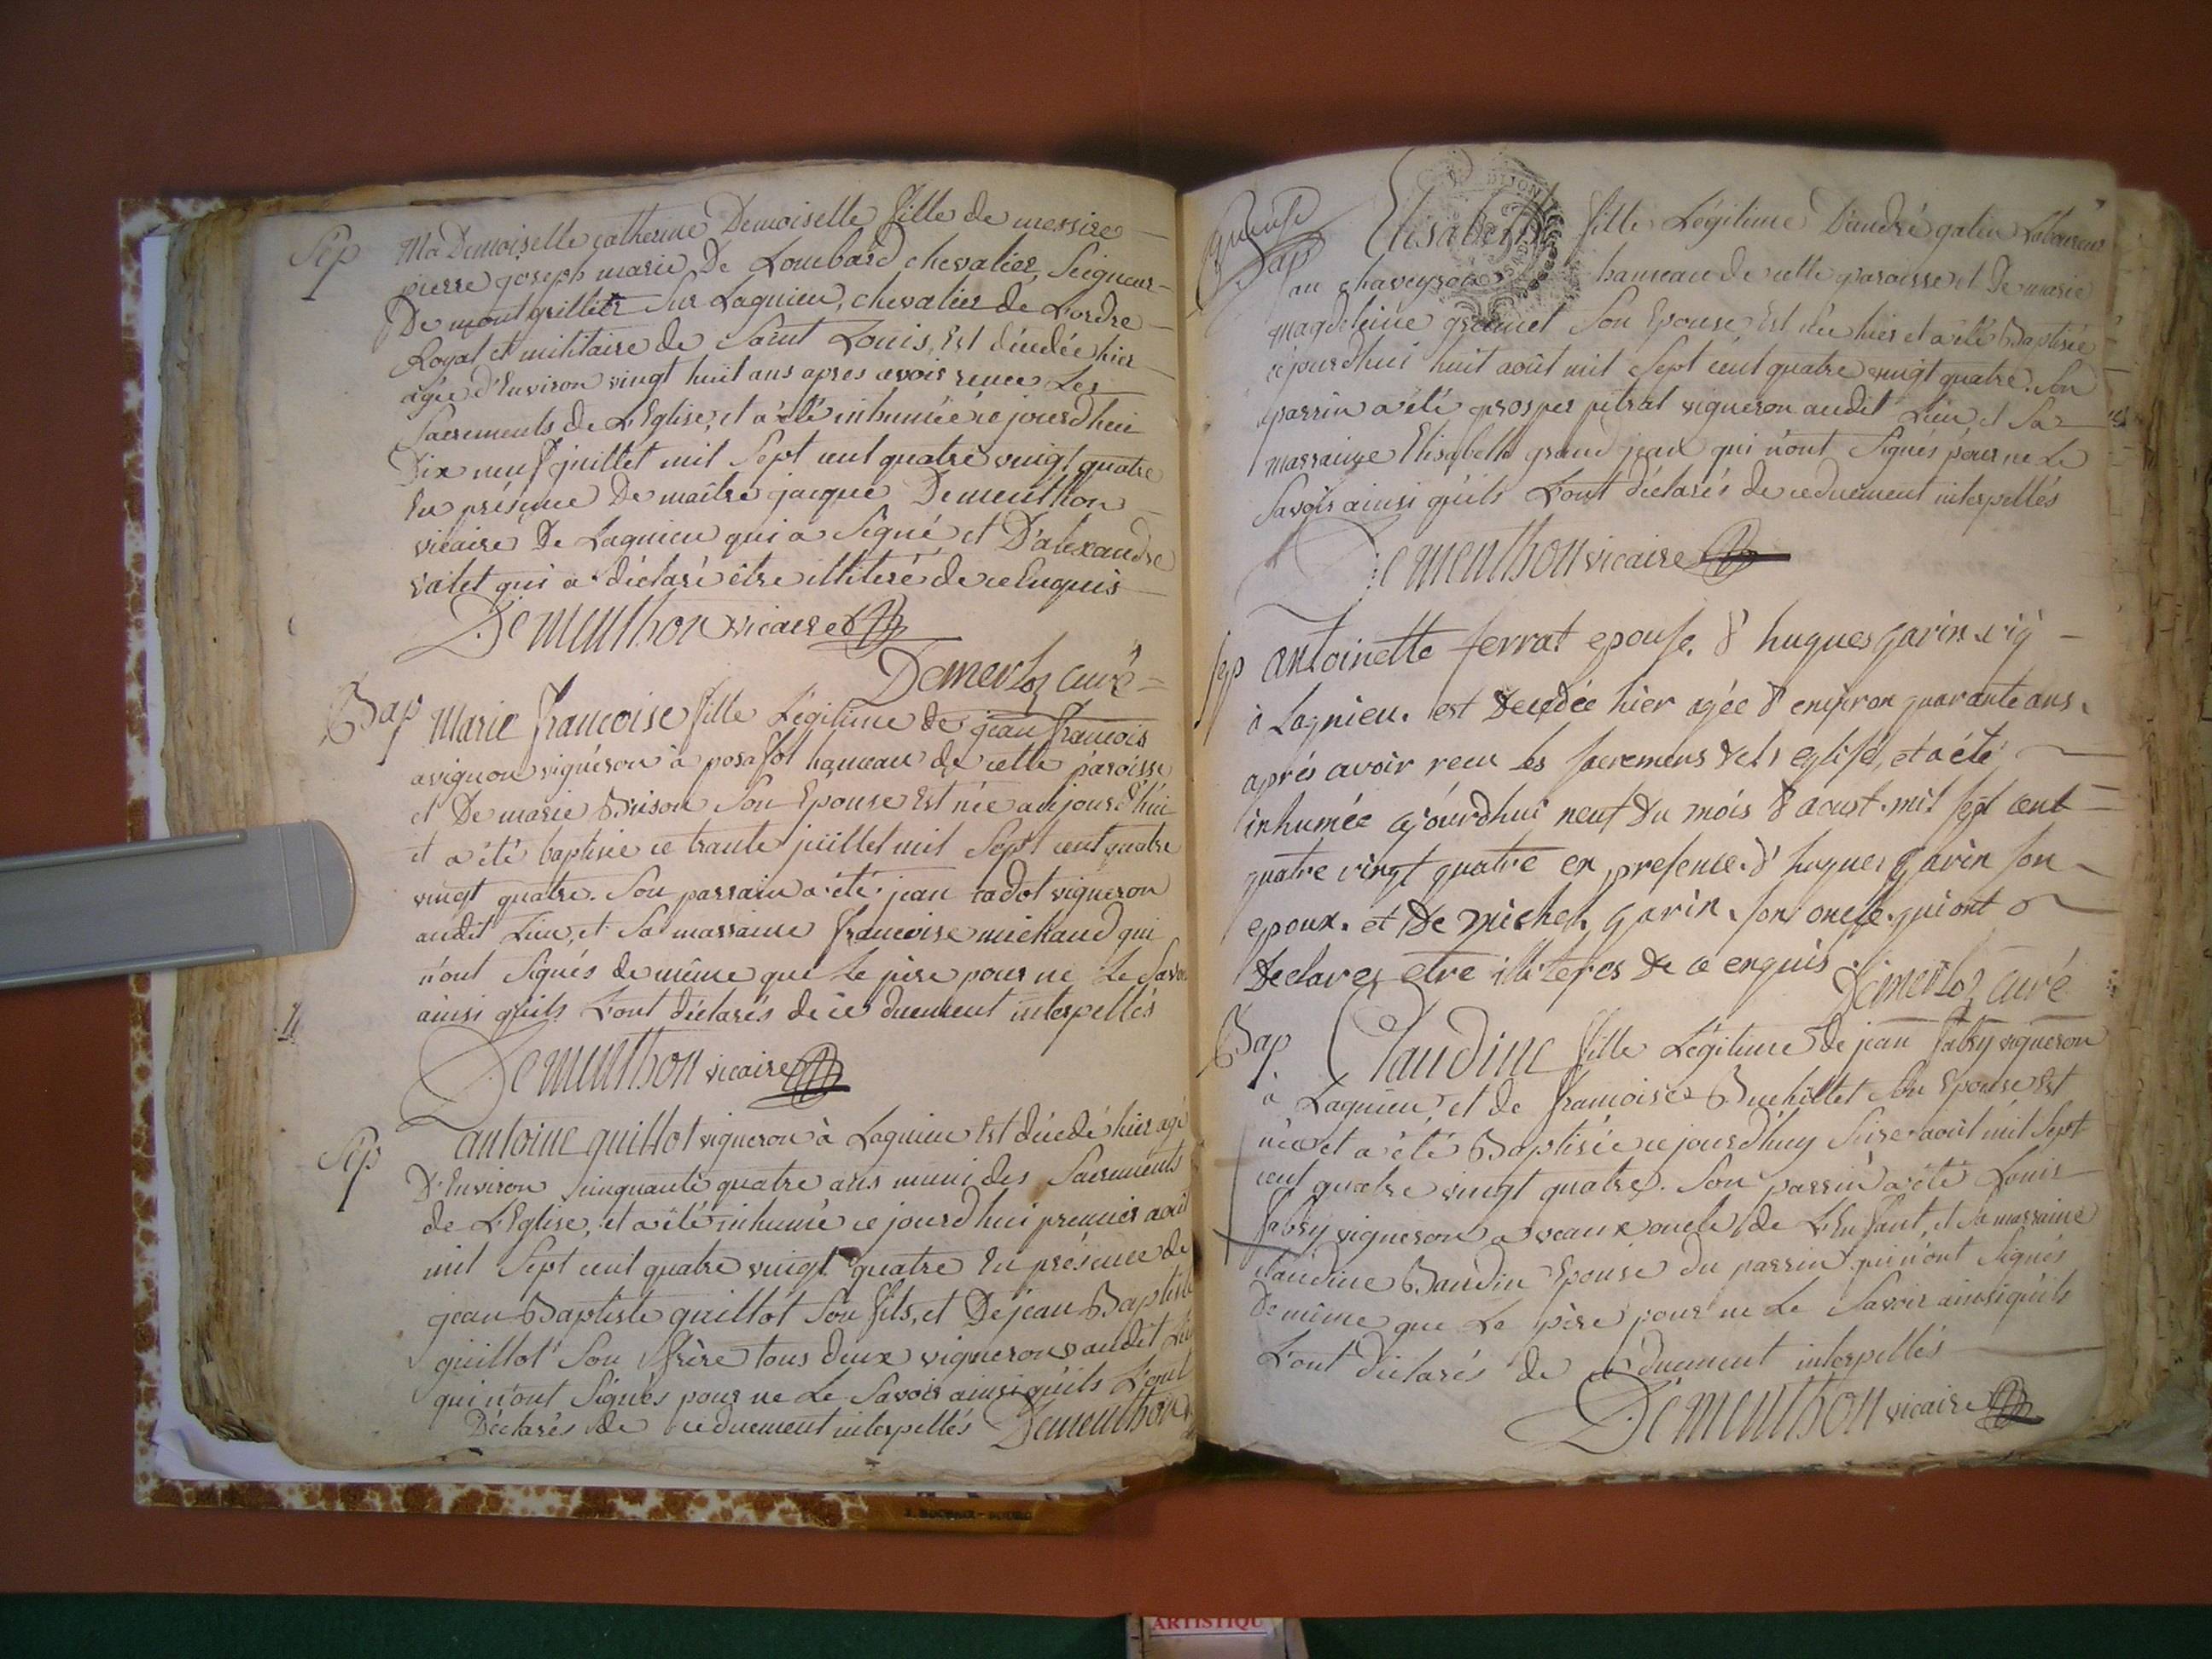 Sep
Ma Demoiselle catherine Demoiselle fille de messire
pierre joseph marie De Lombard chevalier, Seigneur
De montgrillier Sur Lagnieu, chevalier de L'ordre
Royal et militaire de Saint Louis, Est décédée hier
agée d'Environ vingt huit ans apres avoir recue Les
Sacrements de L'Eglise, et a été inhumée ce jourd'hui
Dix neuf juillet mil Sept cent quatre vingt quatre
En présence De maître jacque Dementhon
vicaire De Lagnieu qui a Signé et D'alexandre
valet qui a déclaré être illiteré de ce Enquis
Dementhon vicaire
Demerloz curé
Bap
Marie francoise fille Légitime de jean francois
avignon vigneron à posafol hameau de cette paroisse
et De marie Brison Son Epouse Est née aujourd'hui
et a été baptisée ce trante juillet mil Sept cent quatre
vingt quatre. Son parrain a été jean cadot vigneron
audit Lieu, et Sa marraine francoise michaud qui
n'ont Signés de même que Le père pour ne Le Savoir
ainsi qu'ils L'ont déclarés de ce duement interpellés
Dementhon vicaire
Sep
antoine guillot vigneron à Lagnieu Est décédé hier agé
D'Environ cinquante quatre ans muni des Sacrements
de L'Eglise, et a été inhumé ce jourd'hui premier août
mil Sept cent quatre vingt quatre En présence de
jean Baptiste guillot Son fils, et De jean Baptiste
guillot Son frère tous deux vignerons audit Lieu
qui n'ont Signés pour ne Le Savoir ainsi qu'ils L'ont
Déclarés de ce duement interpellés Dementhon
DIJON
Bap
Elisabeth fille Légitime D'andré galien Laboureur
au chaveyron hameau de cette paroisse et De marie
magdeleine grumet Son Epouse Est née hier et a été Baptisée
ce jourd'hui huit août mil Sept cent quatre vingt quatre. Son
parrin a été prosper pitrat vigneron audit Lieu, et Sa
marraine Elisabeth grand jean qui n'ont Signés pour ne Le
Savoir ainsi qu'ils L'ont déclarés de ce duement interpellés
Dementhon vicaire
sep
antoinette ferrat epouse d'hugues garin vig
à Lagnieu. est decedée hier agée d'environ quarante ans.
après avoir recu les sacremens de l'eglise, et a été
inhumée ajourdhui neuf du mois d'aoust. mil sept cent
quatre vingt quatre en presence d'hugues garin son
epoux. et De michel garin. son oncle. qui ont
declarez etre illiteres de ce enquis.
Demerloz curé
Bap
Claudine fille Légitime De jean fabry vigneron
à Lagnieu et de francoise Buchillet Son Epouse Est
née et a été Baptisée ce jourd'huy Seise août mil Sept
cent quatre vingt quatre. Son parrin a été Louis
fabry vigneron a veaux oncle de L'Enfant, et Sa marraine
claudine Baudin Epouse Du parrin qui n'ont Signés
De même que Le père pour ne Le Savoir ainsi qu'ils
L'ont déclarés de ce duement interpellés
Dementhon vicaire
ARTISTIQU